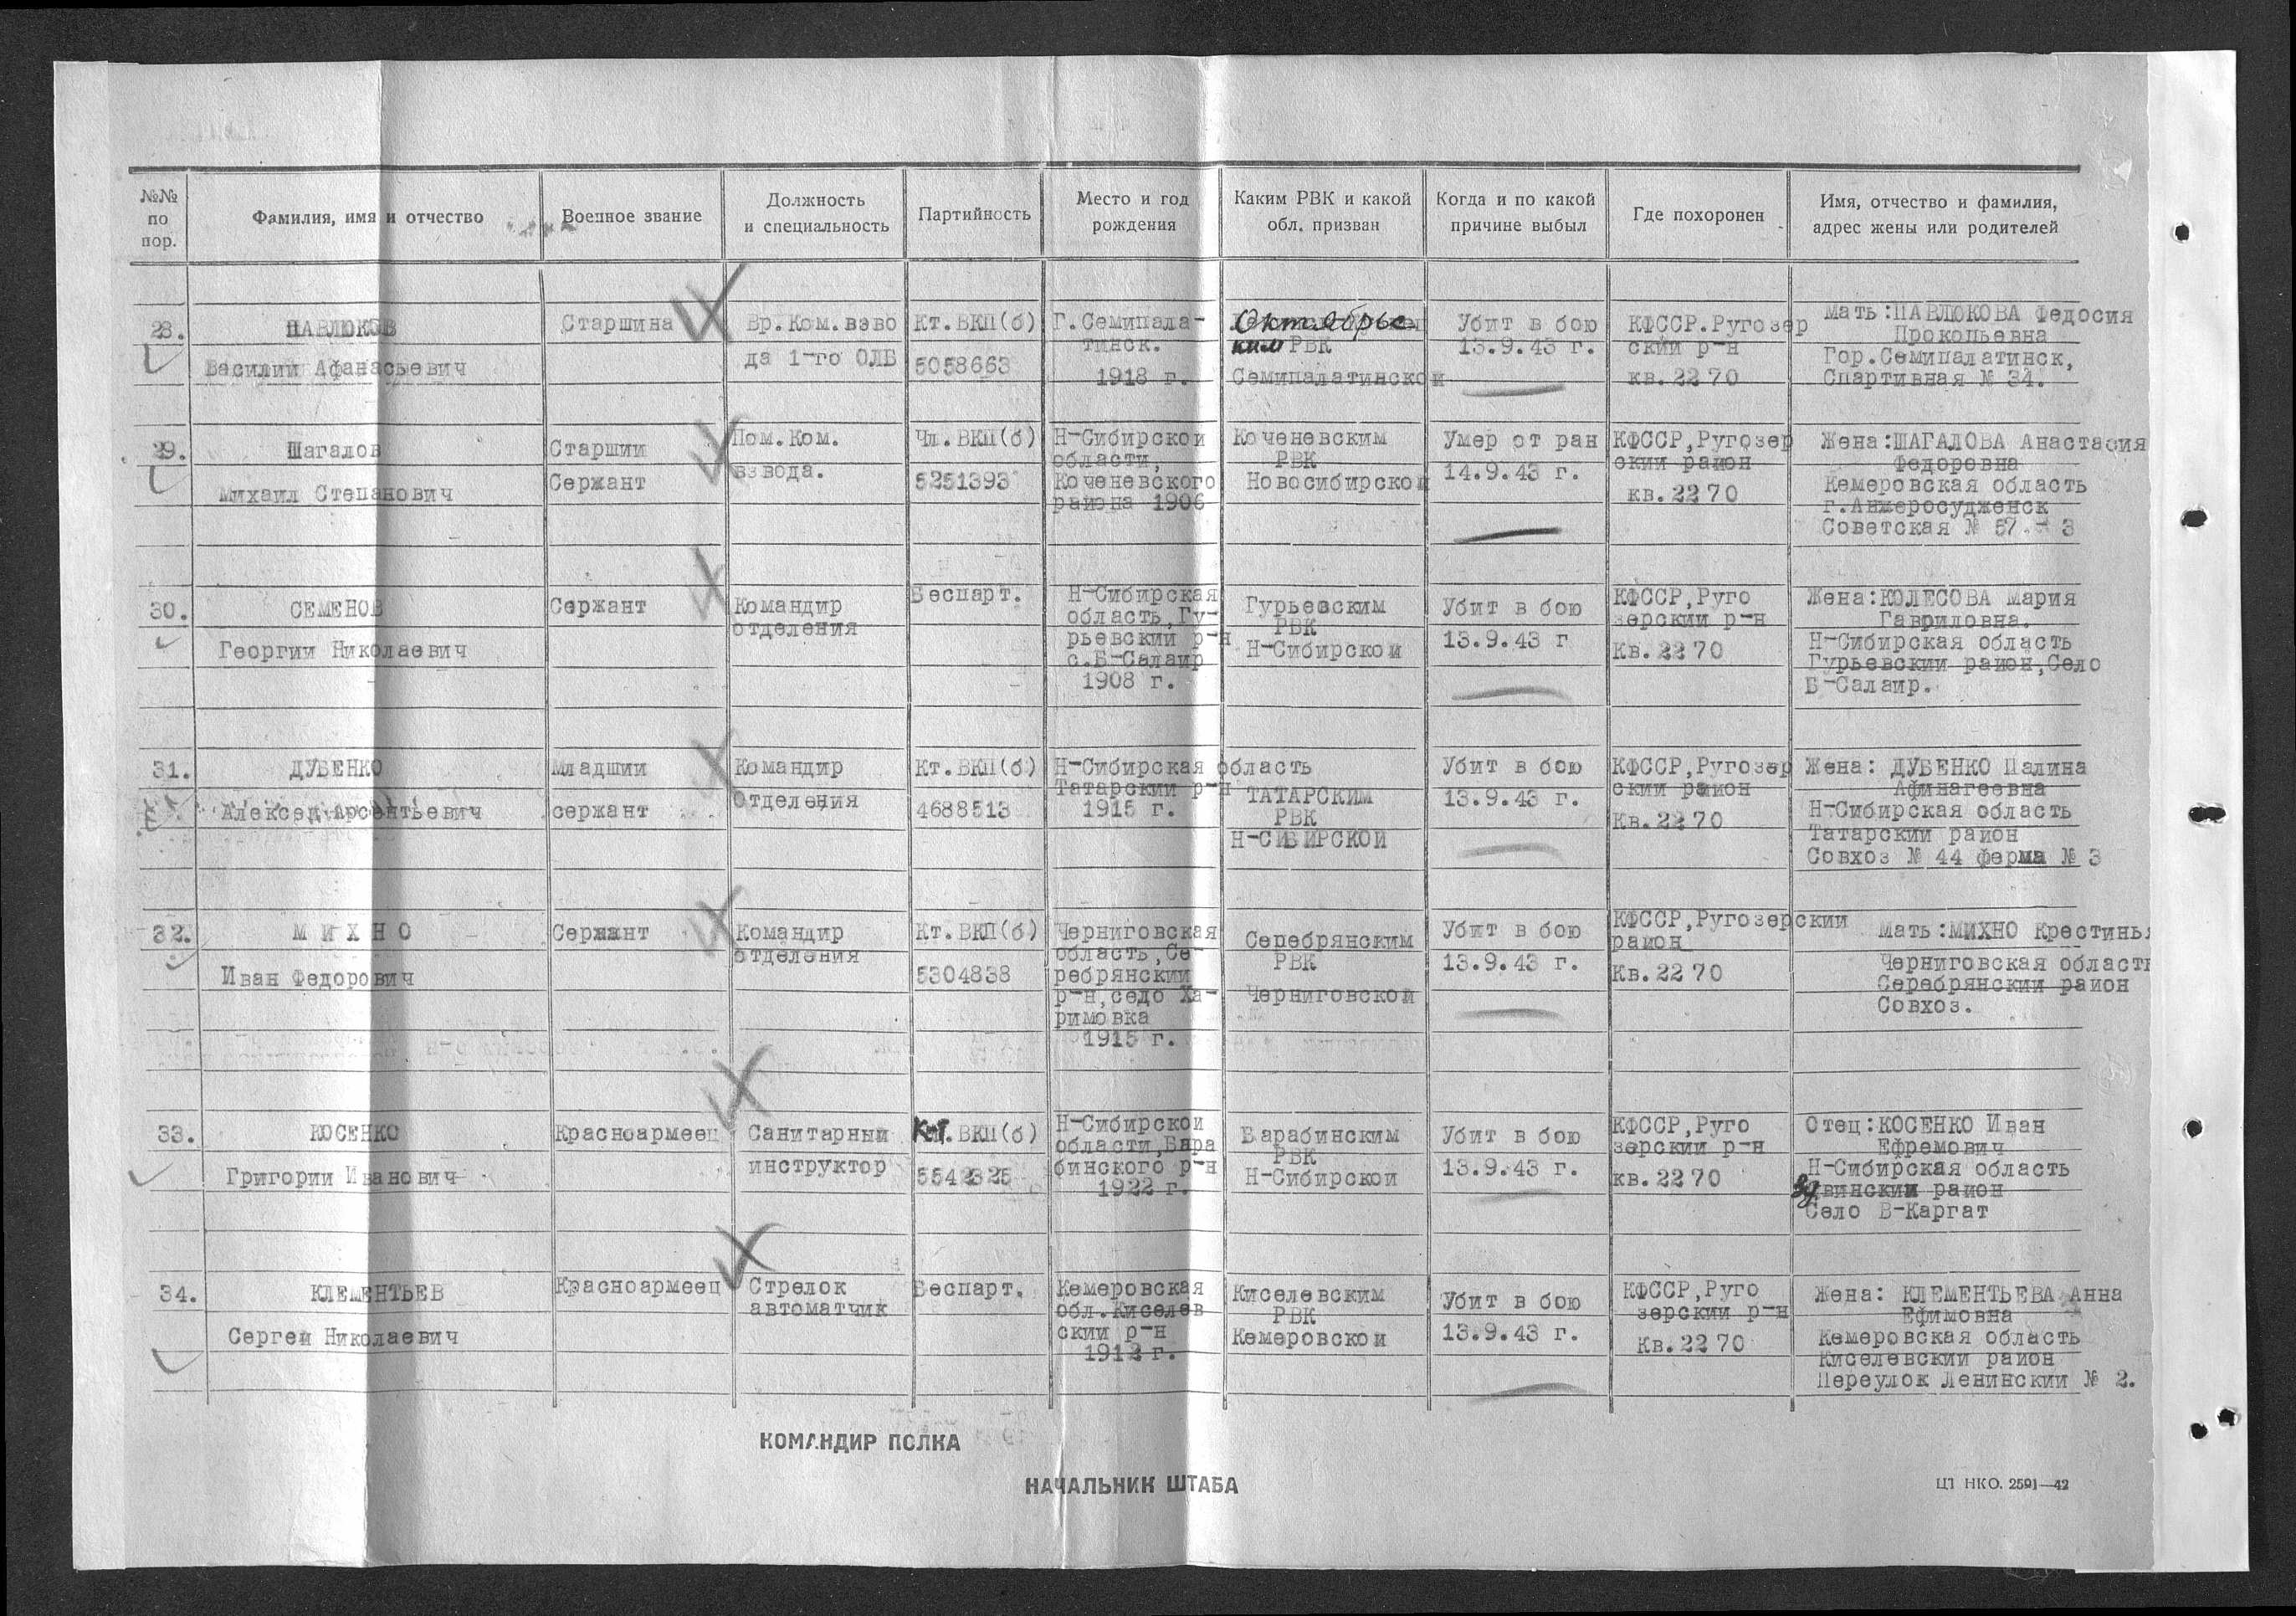 №№ по пор.
Фамилия, имя и отчество
Военное звание
Должность и специальность
Партийность
Место и год рождения
Каким РВК и какой обл. призван
Когда и по какой причине выбыл
Где похоронен
Имя, отчество и фамилия, адрес жены или родителей
28.
ПАВЛЮКОВ
Василии Афанасьевич
Старшина
Вр.Ком.взво
да 1-го ОЛБ
Кт.ВКП(б)
5058663
Г.Семипала-
тинск.
1918 г.
Октябрьс
ким РВК
Семипалатинскои
Убит в бою
13.9.43 г.
КФССР.Ругозер
скии р-н
кв.2270
Мать:ПАВЛЮКОВА Федосия
Прокопьевна
Гор.Семипалатинск,
Спартивная № 34.
29.
Шагалов
Михаил Степанович
Старшии
Сержант
Пом.Ком.
взвода.
Чл.ВКП(б)
5251393
Н-Сибирскои
области,
Коченевского
раиона 1906
Коченевским
РВК
Новосибирскои
Умер от ран
14.9.43 г.
КФССР,Ругозер
скии раион
кв.2270
Жена:ШАГАЛОВА Анастасия
Федоровна
Кемеровская область
г.Анжеросудженск
Советская № 57.- 3
30.
СЕМЕНОВ
Георгии Николаевич
Сержант
Командир
отделения
Беспарт.
Н-Сибирская
область,Гу-
рьевскии р-н
с.Б-Салаир
1908 г.
Гурьевским
РВК
Н-Сибирскои
Убит в бою
13.9.43 г
КФССР,Руго
зерскии р-н
Кв.2270
Жена:КОЛЕСОВА Мария
Гавриловна.
Н-Сибирская область
Гурьевскии раион,Село
Б-Салаир.
31.
ДУБЕНКО
Алексеи Арсентьевич
Младшии
сержант
Командир
Отделения
Кт.ВКП(б)
4688513
Н-Сибирская область
Татарскии р-н
1915 г.
ТАТАРСКИМ
РВК
Н-СИБИРСКОИ
Убит в бою
13.9.43 г.
КФССР,Ругозер
скии раион
Кв.2270
Жена: ДУБЕНКО Палина
Афинагеевна
Н-Сибирская область
Татарскии раион
Совхоз № 44 ферма № 3
32.
М И Х Н О
Иван Федорович
Сержант
Командир
отделения
Кт.ВКП(б)
5304838
Черниговская
область,Се-
ребрянскии
р-н,село Ха-
римовка
1915 г.
Серебрянским
РВК
Черниговскои
Убит в бою
13.9.43 г.
КФССР,Ругозерскии
раион
Кв.2270
Мать:МИХНО Крестинья
Черниговская область
Серебрянскии раион
Совхоз.
33.
КОСЕНКО
Григории Иванович
Красноармеец
Санитарныи
инструктор
Кт.ВКП(б)
5542325
Н-Сибирскои
области,Бара
бинского р-н
1922 г.
Барабинским
РВК
Н-Сибирскои
Убит в бою
13.9.43 г.
КФССР,Руго
зерскии р-н
кв.2270
Отец:КОСЕНКО Иван
Ефремович
Н-Сибирская область
Здвинскии раион
Село В-Каргат
34.
КЛЕМЕНТЬЕВ
Сергеи Николаевич
Красноармеец
Стрелок
автоматчик
Беспарт.
Кемеровская
обл.Киселев
скии р-н
1912 г.
Киселевским
РВК
Кемеровскои
Убит в бою
13.9.43 г.
КФССР,Руго
зерскии р-н
Кв.2270
Жена: КЛЕМЕНТЬЕВА Анна
Ефимовна
Кемеровская область
Киселевскии раион
Переулок Ленинскии № 2.
КОМАНДИР ПОЛКА
НАЧАЛЬНИК ШТАБА
ЦТ НКО. 2591—42